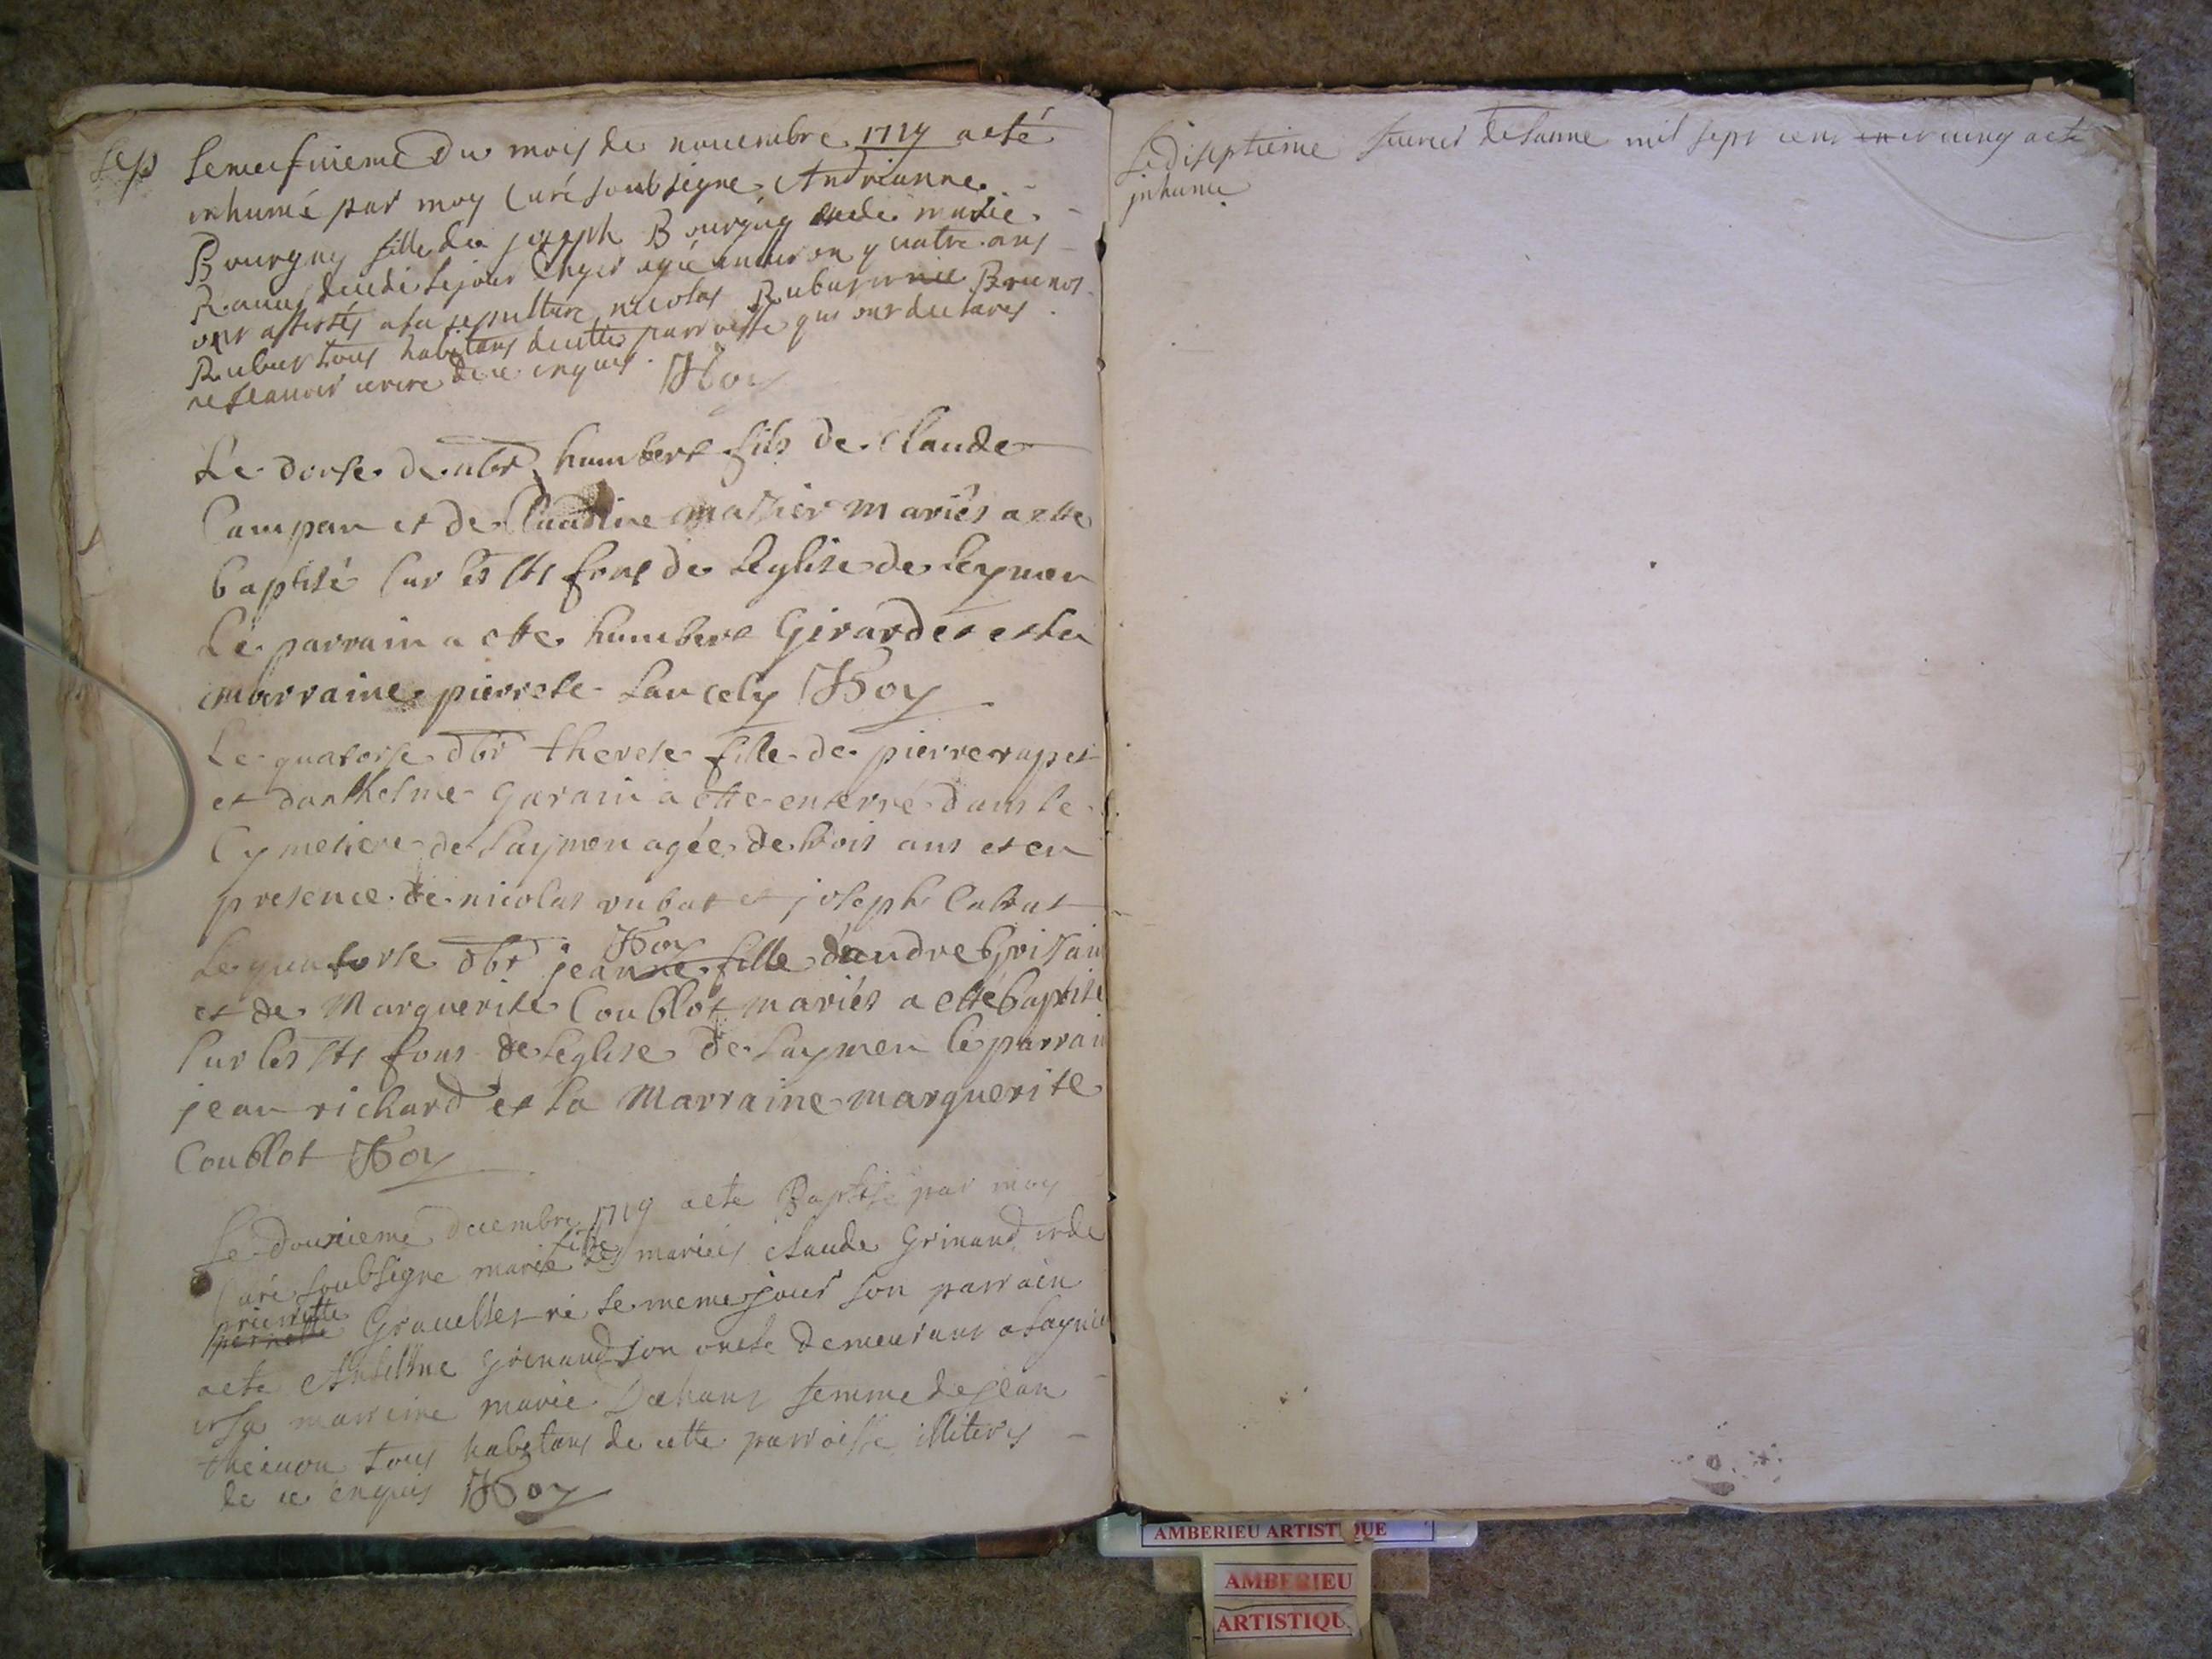 sep
Le neufvieme Du mois de novembre 1719 a eté
inhumé par moy Curé soubsigné Andrianne
Bourgey fille de joseph Bourgey et de marie
decedé le jour âgée environ quatre ans
ont assistés a sa sepulture nicolas Rubat
Rubat tous habitans de cette parroisse qui ont declarés
ne scavoir ecrire de ce enquis
Roy
Le dorse de nbr humbert fils de Claude
Campan et de Claudine mattier mariés a ette
baptisé sur les sts fons de Leglise de leymen
Le parrain a ette humbert Girardet et la
marraine pierrete Lancely Roy
Le quatorse dbr therese fille de pierre rapet
et danthelme Garain a ette enterré dans le
Cymetiere de Laymen agée de trois ans et en
presence de nicolas rubat et joseph Cabat
Roy
Le quatorse dbr jeanne fille dandre Grissain
et de Marguerite Coublot mariés a etté baptisé
sur les sts fons de Leglise de Laymen le parrain
jean richard et la Marraine marguerite
Coublot Roy
Le dousieme decembre 1719 a ete Baptisé par moy
Curé soubsigné marie fille des mariés Claude Grinand et de
pierrette pernette Gravellet né le meme jour son parrain
a ete Anthelme Grinand son oncle demeurant a
et sa marreine marie femme de jean
thevenon tous habitans de cette parroisse illiterés
de ce enquis Roy
Le diseptieme fevrier de lanne mil sept cent et cinq a ete
inhumé
AMBERIEU ARTISTIQUE
AMBERIEU
ARTISTIQU